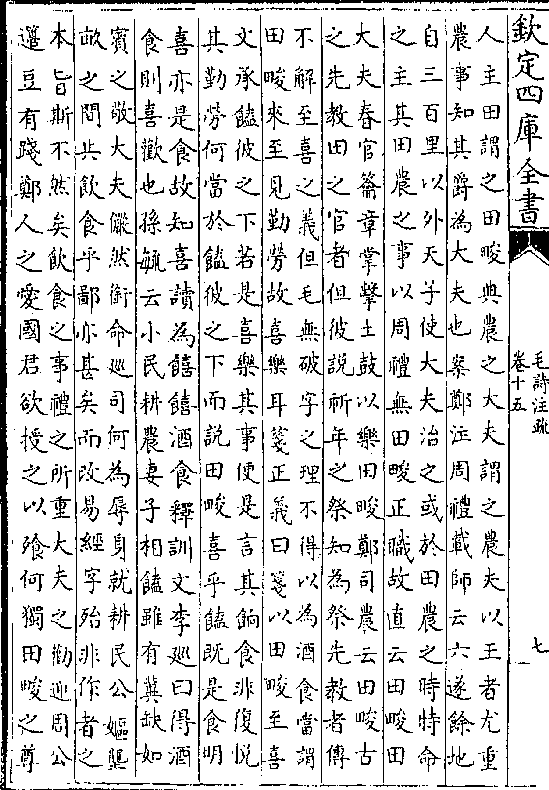 欽定四庫全書
毛詩注疏
卷十五
七
人主田謂之田畯典農之大夫謂之農夫以王者尤重
農事知其爵為大夫也案鄭注周禮載師云六遂餘地
自三百里以外天子使大夫治之或於田農之時特命
之主其田農之事以周禮無田畯正職故直云田畯田
大夫春官籥章掌擊土鼓以樂田畯鄭司農云田畯古
之先教田之官者但彼說祈年之祭知為祭先教者傳
不解至喜之義但毛無破字之理不得以為酒食當謂
田畯來至見勤勞故喜樂耳箋正義曰箋以田畯至喜
文承饁彼之下若是喜樂其事便是言其餉食非復悅
其勤勞何當於饁彼之下而說田畯喜乎饁既是食明
喜亦是食故知喜讀為饎饎酒食釋訓文李廵曰得酒
食則喜歡也孫毓云小民耕農妻子相饁雖有冀缺如
賓之敬大夫儼然衘命廵司何為辱身就耕民公嫗壟
畝之間共飲食乎鄙亦甚矣而改易經字殆非作者之
本旨斯不然矣飲食之事禮之所重大夫之勸迎周公
籩豆有踐鄭人之愛國君欲授之以飱何獨田畯之尊